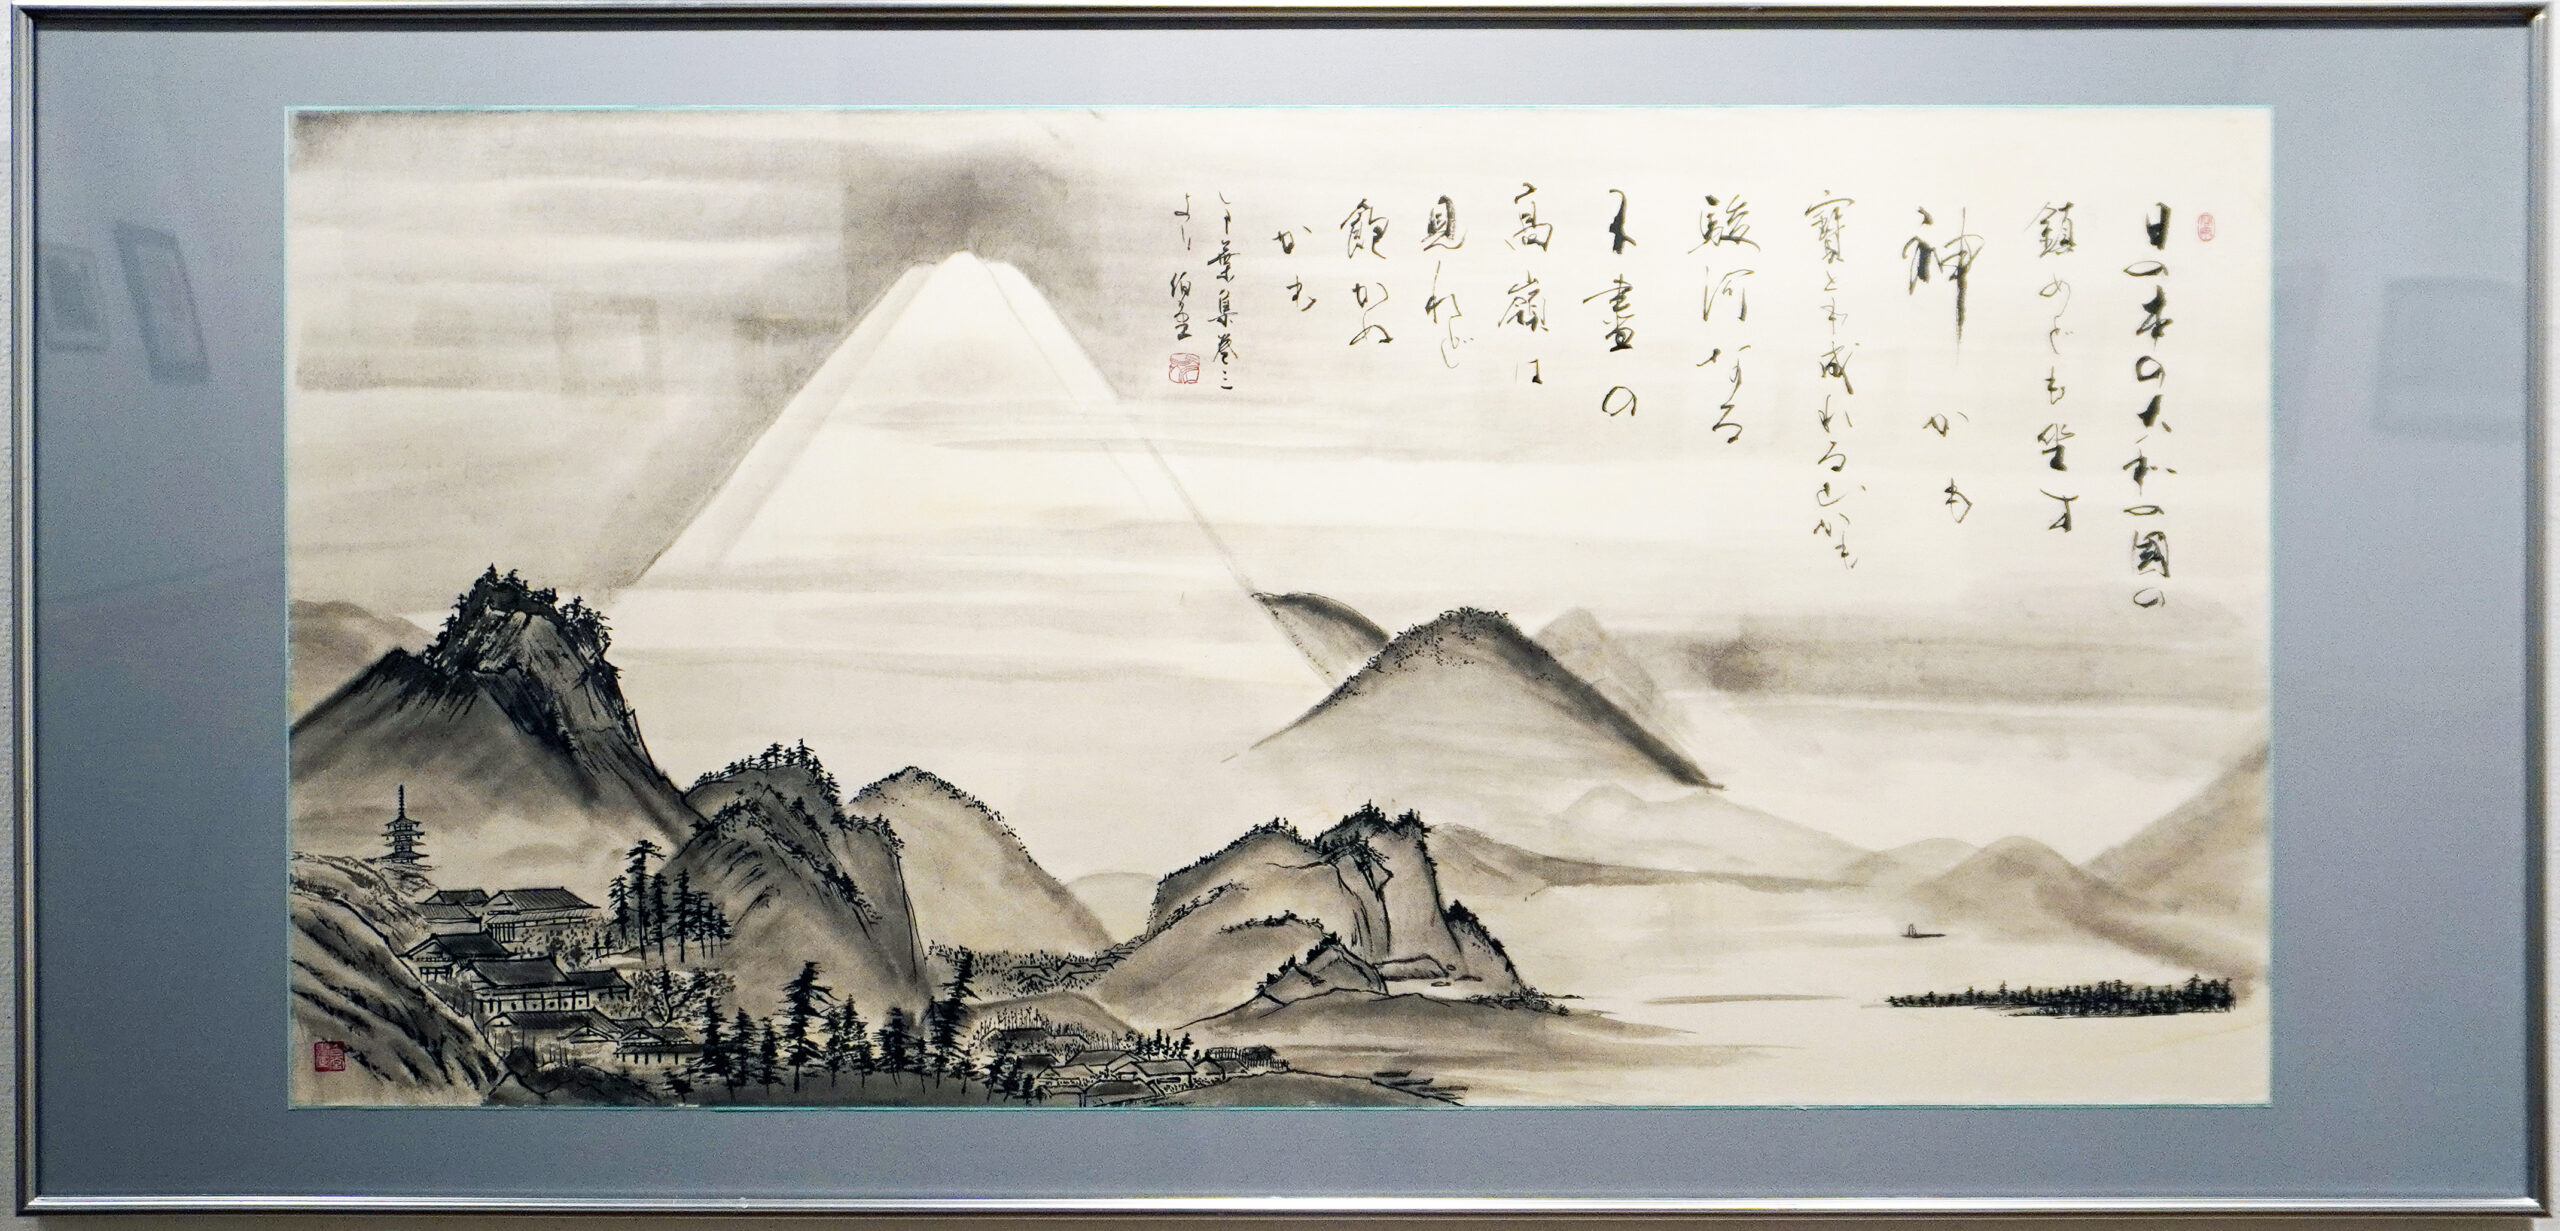 日の本の大和の國の
鎮めとも坐す
神かも
寶とも成れる山かも
駿河なる
不盡の
高嶺は
見れど
飽かぬ
かも
万葉集巻三
より 伯